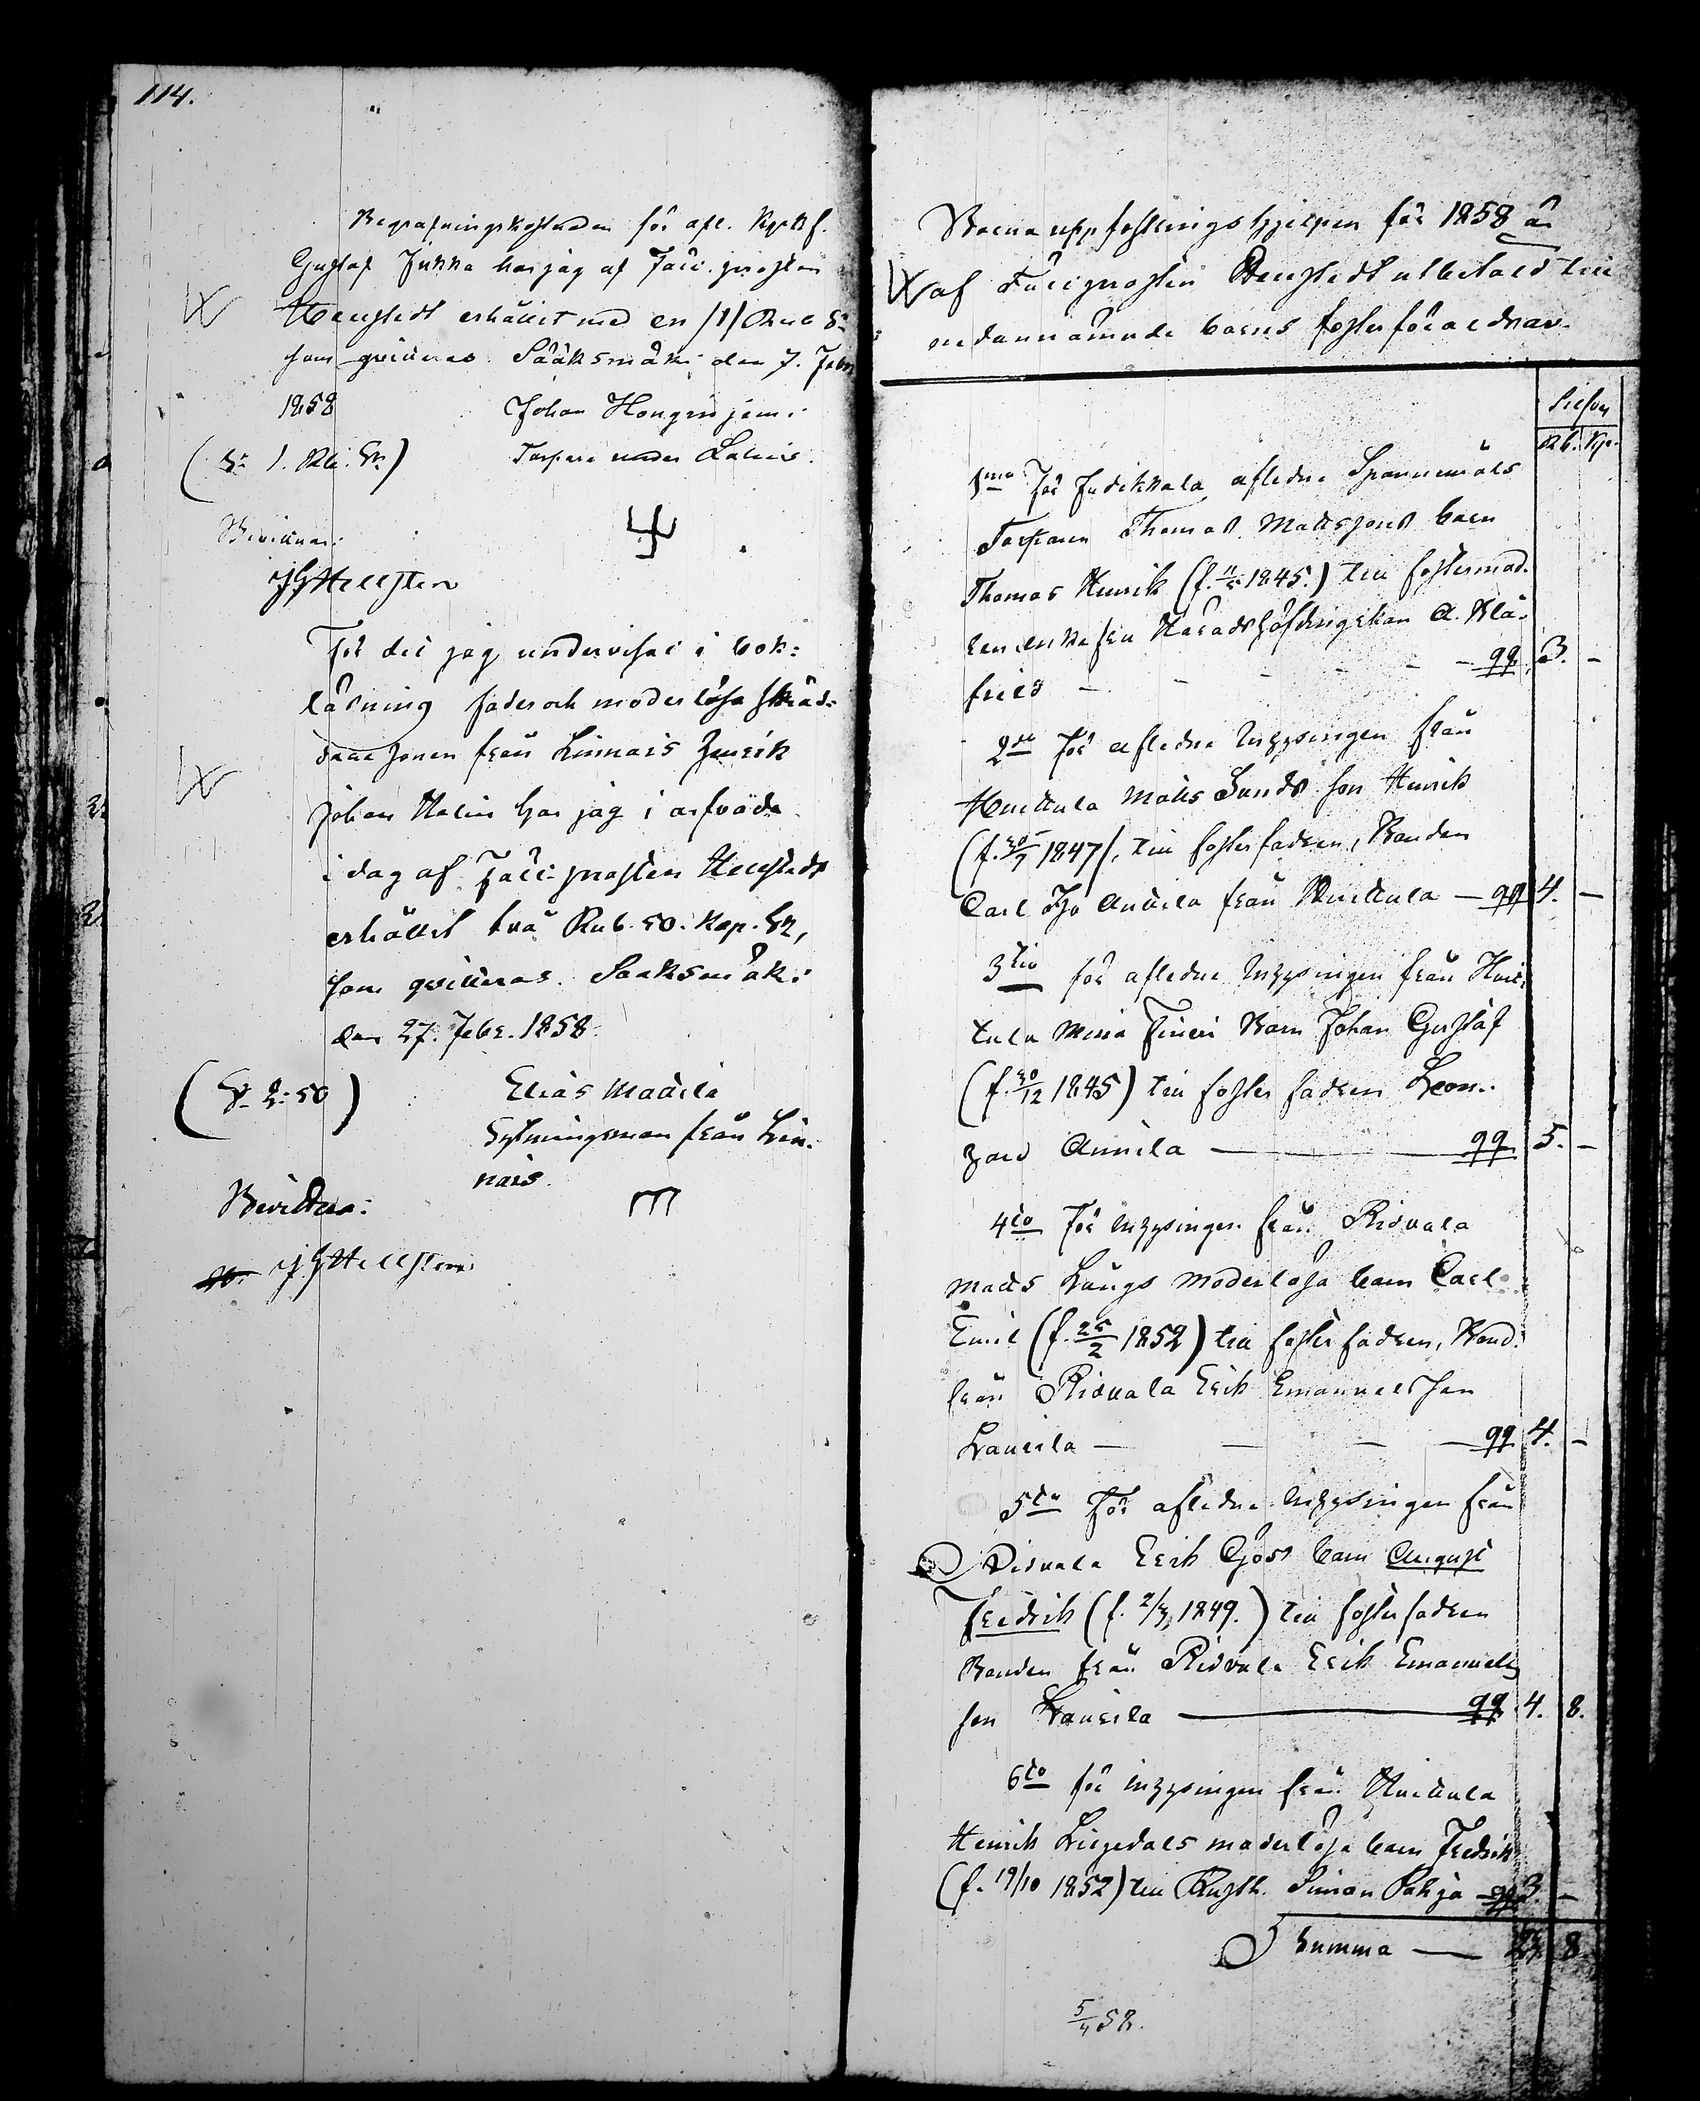 114.
Begrafningskostnaden för afl. Kyrkf.
Gustaf Jukka har jag af Fält-prosten
Hellstedt erhållit med en /1/ Rub Sr
som qvitteras. Sääksmäki den 7. Febr
1858 Johan Hongisjemi
(Sr 1. Rub. Sr) Torpare under Lahis.
Bevittnar:
JGHellsten
För det jag undervisat i bok-
läsning fader och moderlösa skräd-
dare sonen från Linnais Henrik
Johan Malin har jag i arfvode
i dag af Fält-prosten Hellstedt
erhållit två Rub. 50. Kop. Sr,
som qvitteras. Sääksmäki
den 27. Febr. 1858.
(Sr 2:50) Elias Mattila
Sytningsman från Lin-
nais.
Bevittnar:
JGHellsten
Barnauppfostringshjelpen för 1858 är
af Fältprosten Hellstedt utbetald till
nedannämnde barns fosterföräldrar.
Silfver
Rb. Kp.
1mo För Judikkala aflidne Spannemåls
Torparen Thomas Mattssons barn
Thomas Henrik (f. 1845.) till fostermod-
ren enkefru Häradshöfdingskan A.
– – – – qq 3. –
2do För aflidne Inhysingen från
Huittula Matts Sunds son Henrik
(f. 1847), till fosterfadren, Bonden
Carl Anttila från Huittula — qq 4. –
3tio för aflidne Inhysingen från Huit-
tula Barn Johan Gustaf
(f. 30/12 1845) till fosterfadren Leon-
hard Anttila — qq 5. –
4to För inhysingen från Ridvala
Matts Långs moderlösa barn Carl
Emil (f. 25/2 1852) till fosterfadren, Bond.
från Ridvala Erik Emanuelsson
Laurila — — — qq 4. –
5to För aflidne inhysingen från
Ridvala Erik Gös barn August
Fredrik (f. 2/3 1849.) till fosterfadren
Bonden från Ridvala Erik Emanuels
son Laurila — qq 4. 8.
6to för inhysingen från Huittula
Henrik Liljedals moderlösa barn Fredrik
(f. 19/10 1852) till Rusth. Simon Pohja — qq 3. –
Summa — 23. 8.
5/4 58.